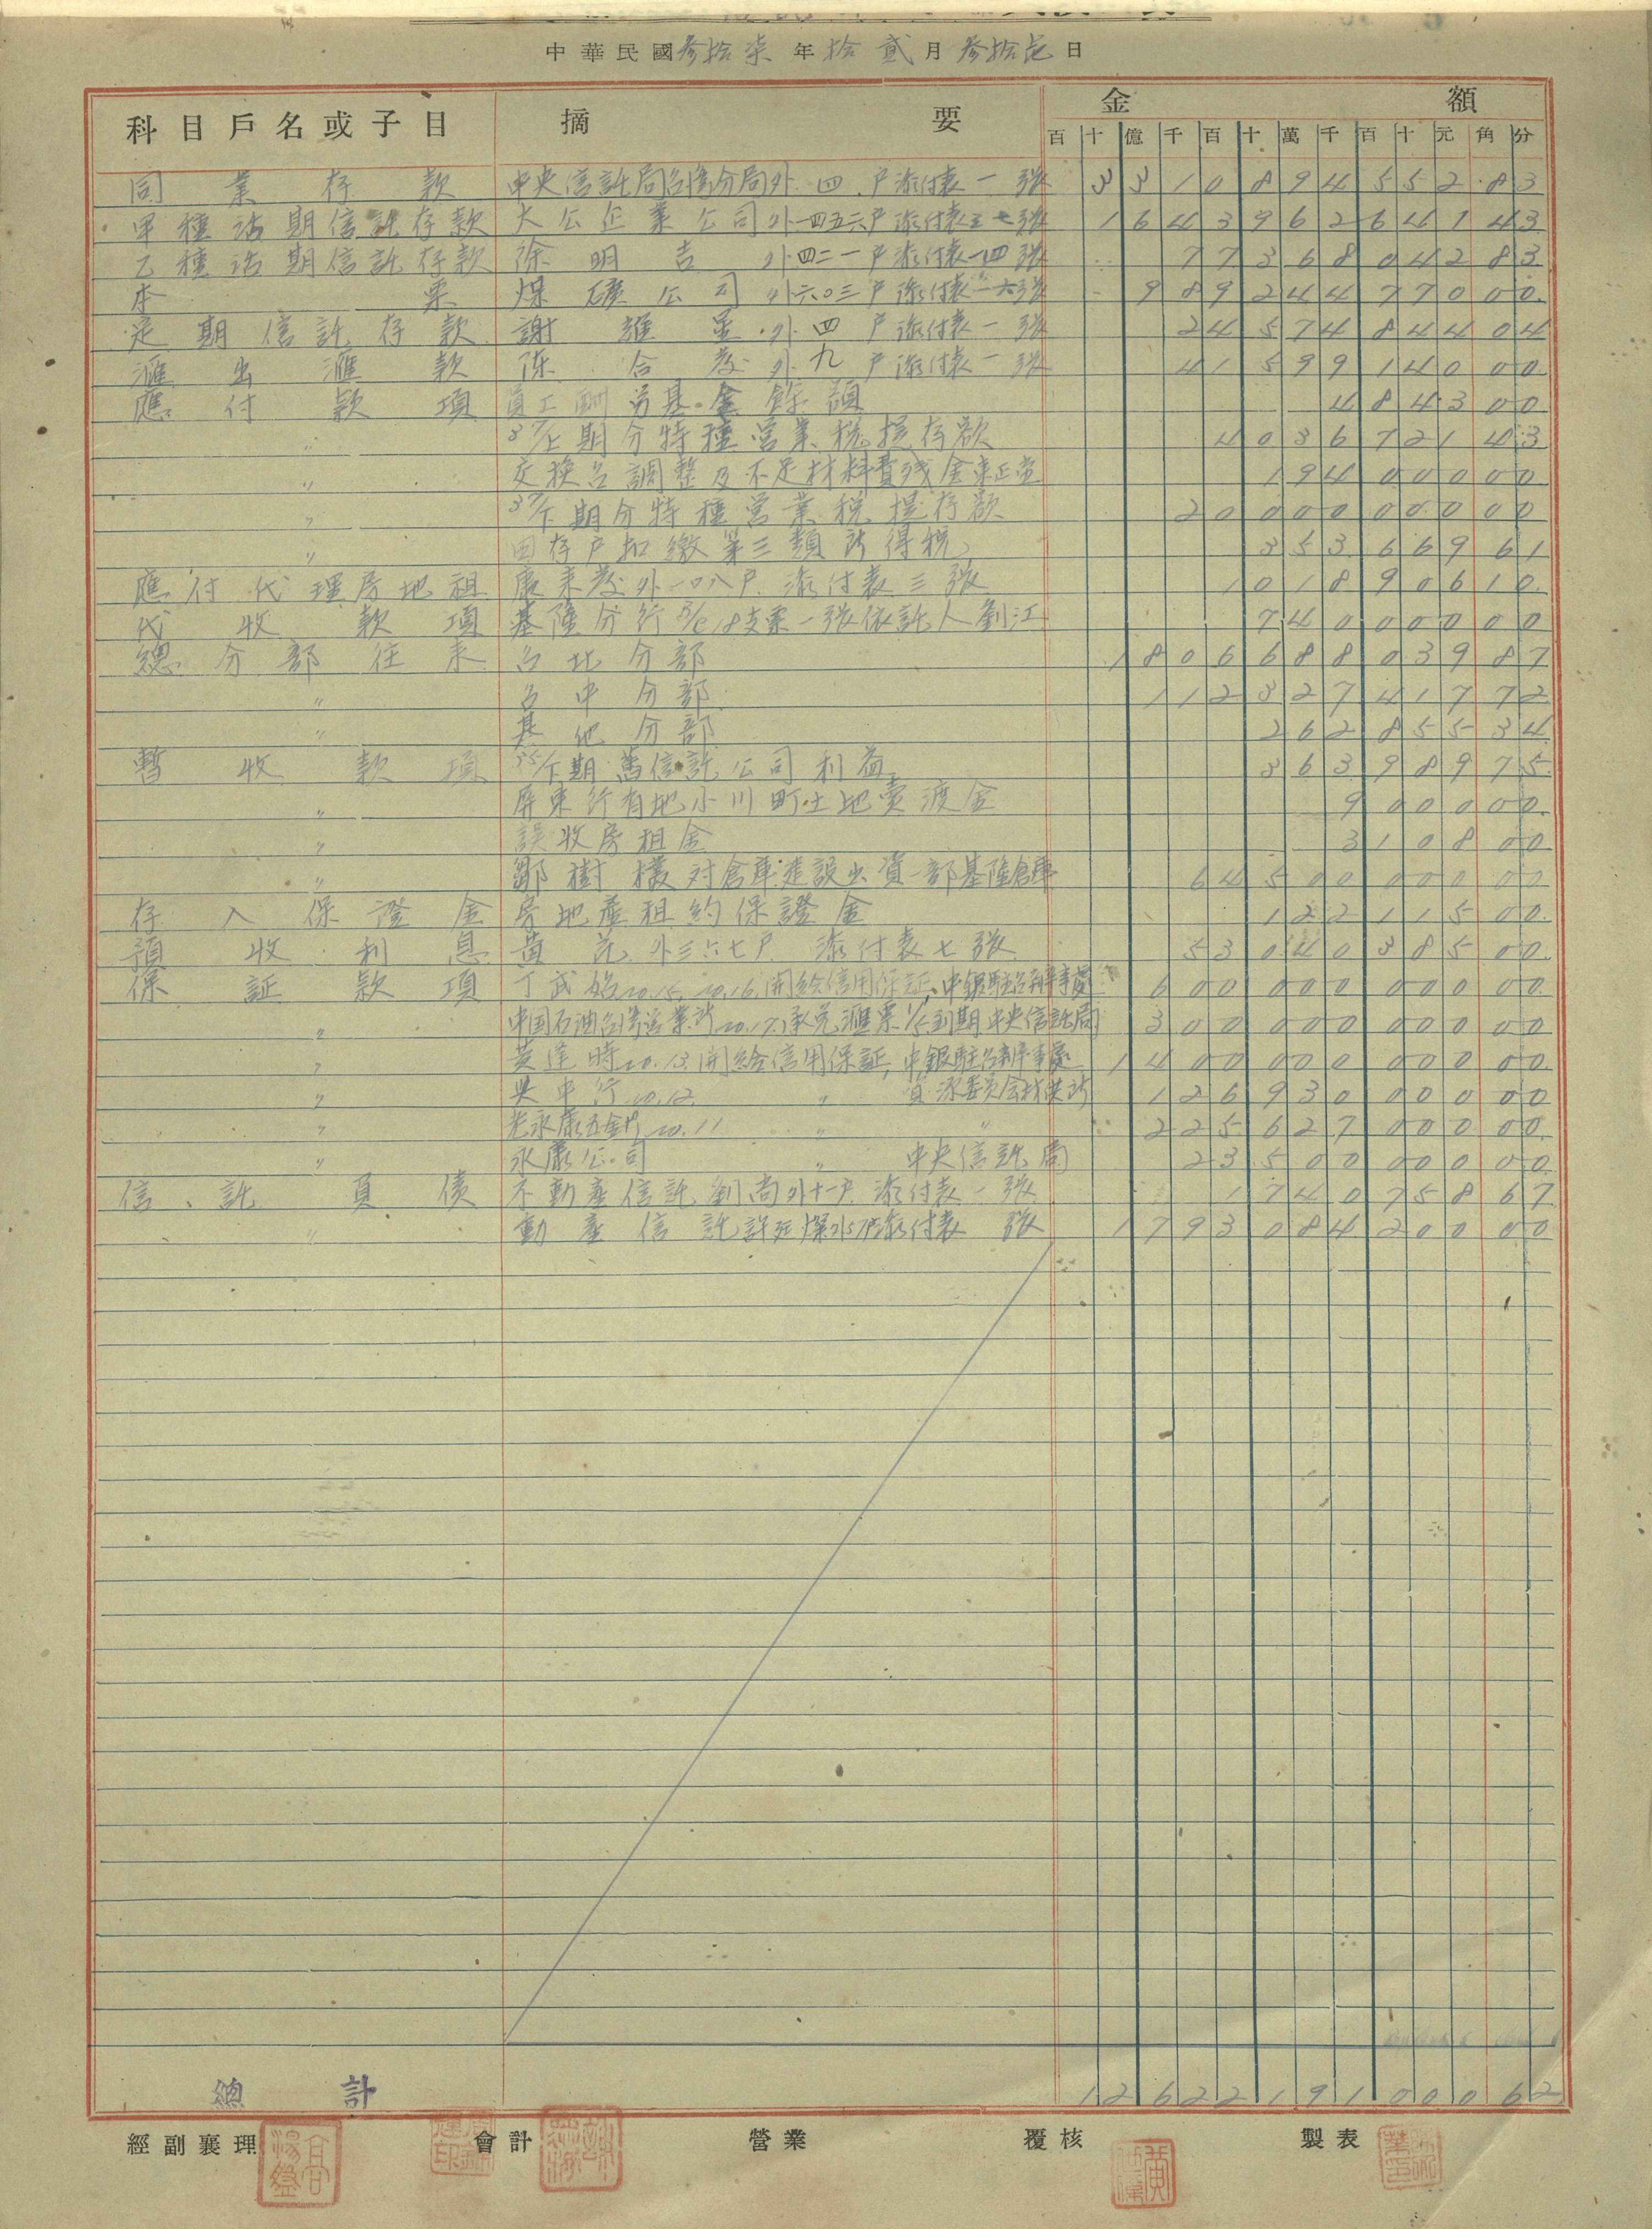 中華民國參拾柒年拾貳月參拾壱日
科目戶名或子目 摘要 金額
百十億千百十萬千百十元角分
同業存款 中央信託局台灣分局外四戶添付表一張 3310894552.83
甲種活期信託存款 大公企業公司外一四五六戶添付表三七張 1643962641.43
乙種活期信託存款 徐明吉外四二一戶添付表一四張 77368042.83
本票 煤礦公司外六〇三戶添付表一六張 989244770.00
定期信託存款 謝 外四戶添付表一張 24574844.04
滙出滙款 陳合發外九戶添付表一張 41599140.00
應付款項 員工酬勞基金餘額 4843.00
〃 37/上期分特種營業稅提存款 4036721.43
〃 交換台調整及不足材料費殘金 194000.00
〃 37/下期分特種營業稅提存款 20000000.00
〃 由存戶扣繳第三類所得稅 353669.61
應付代理房地租 康来發外一〇八戶添付表三張 1018906.10
代收款項 基隆分行 支票一張依託人劉江 740000.00
總分部往来 台北分部 1806688039.87
〃 台中分部 112327417.72
〃 其他分部 262855.34
暫收款項 35/下期 萬信託公司利益 363989.75
〃 屏東行有地小川町土地賣渡金 9000.00
〃 誤收房租金 3108.00
〃 鄒樹 对倉庫建設出資一部基隆倉庫 64500000.00
存入保證金 房地產租約保證金 122115.00
預收利息 黃 外三六七戶添付表七張 53040385.00
保証款項 丁武始20.15,20.16,開給信用保証,中銀駐台辦事處 600000000.00
〃 中国石油台灣營業所20.17,承兌滙票1/5到期中央信託局 300000000.00
〃 黃逢時20.13開給信用保証,中銀駐台辦事處 1400000000.00
〃 吳中行20.12 〃 資源委員会 126930000.00
〃 老永康五金 20.11 〃 〃 225627000.00
〃 永康公司 〃 中央信託局 23500000.00
信託負債 不動產信託劉尚外十一戶添付表一張 1740758.67
〃 動產信託許 添付表 張 1793084200.00
總計 12622191000.62
經副襄理 會計 營業 覆核 製表